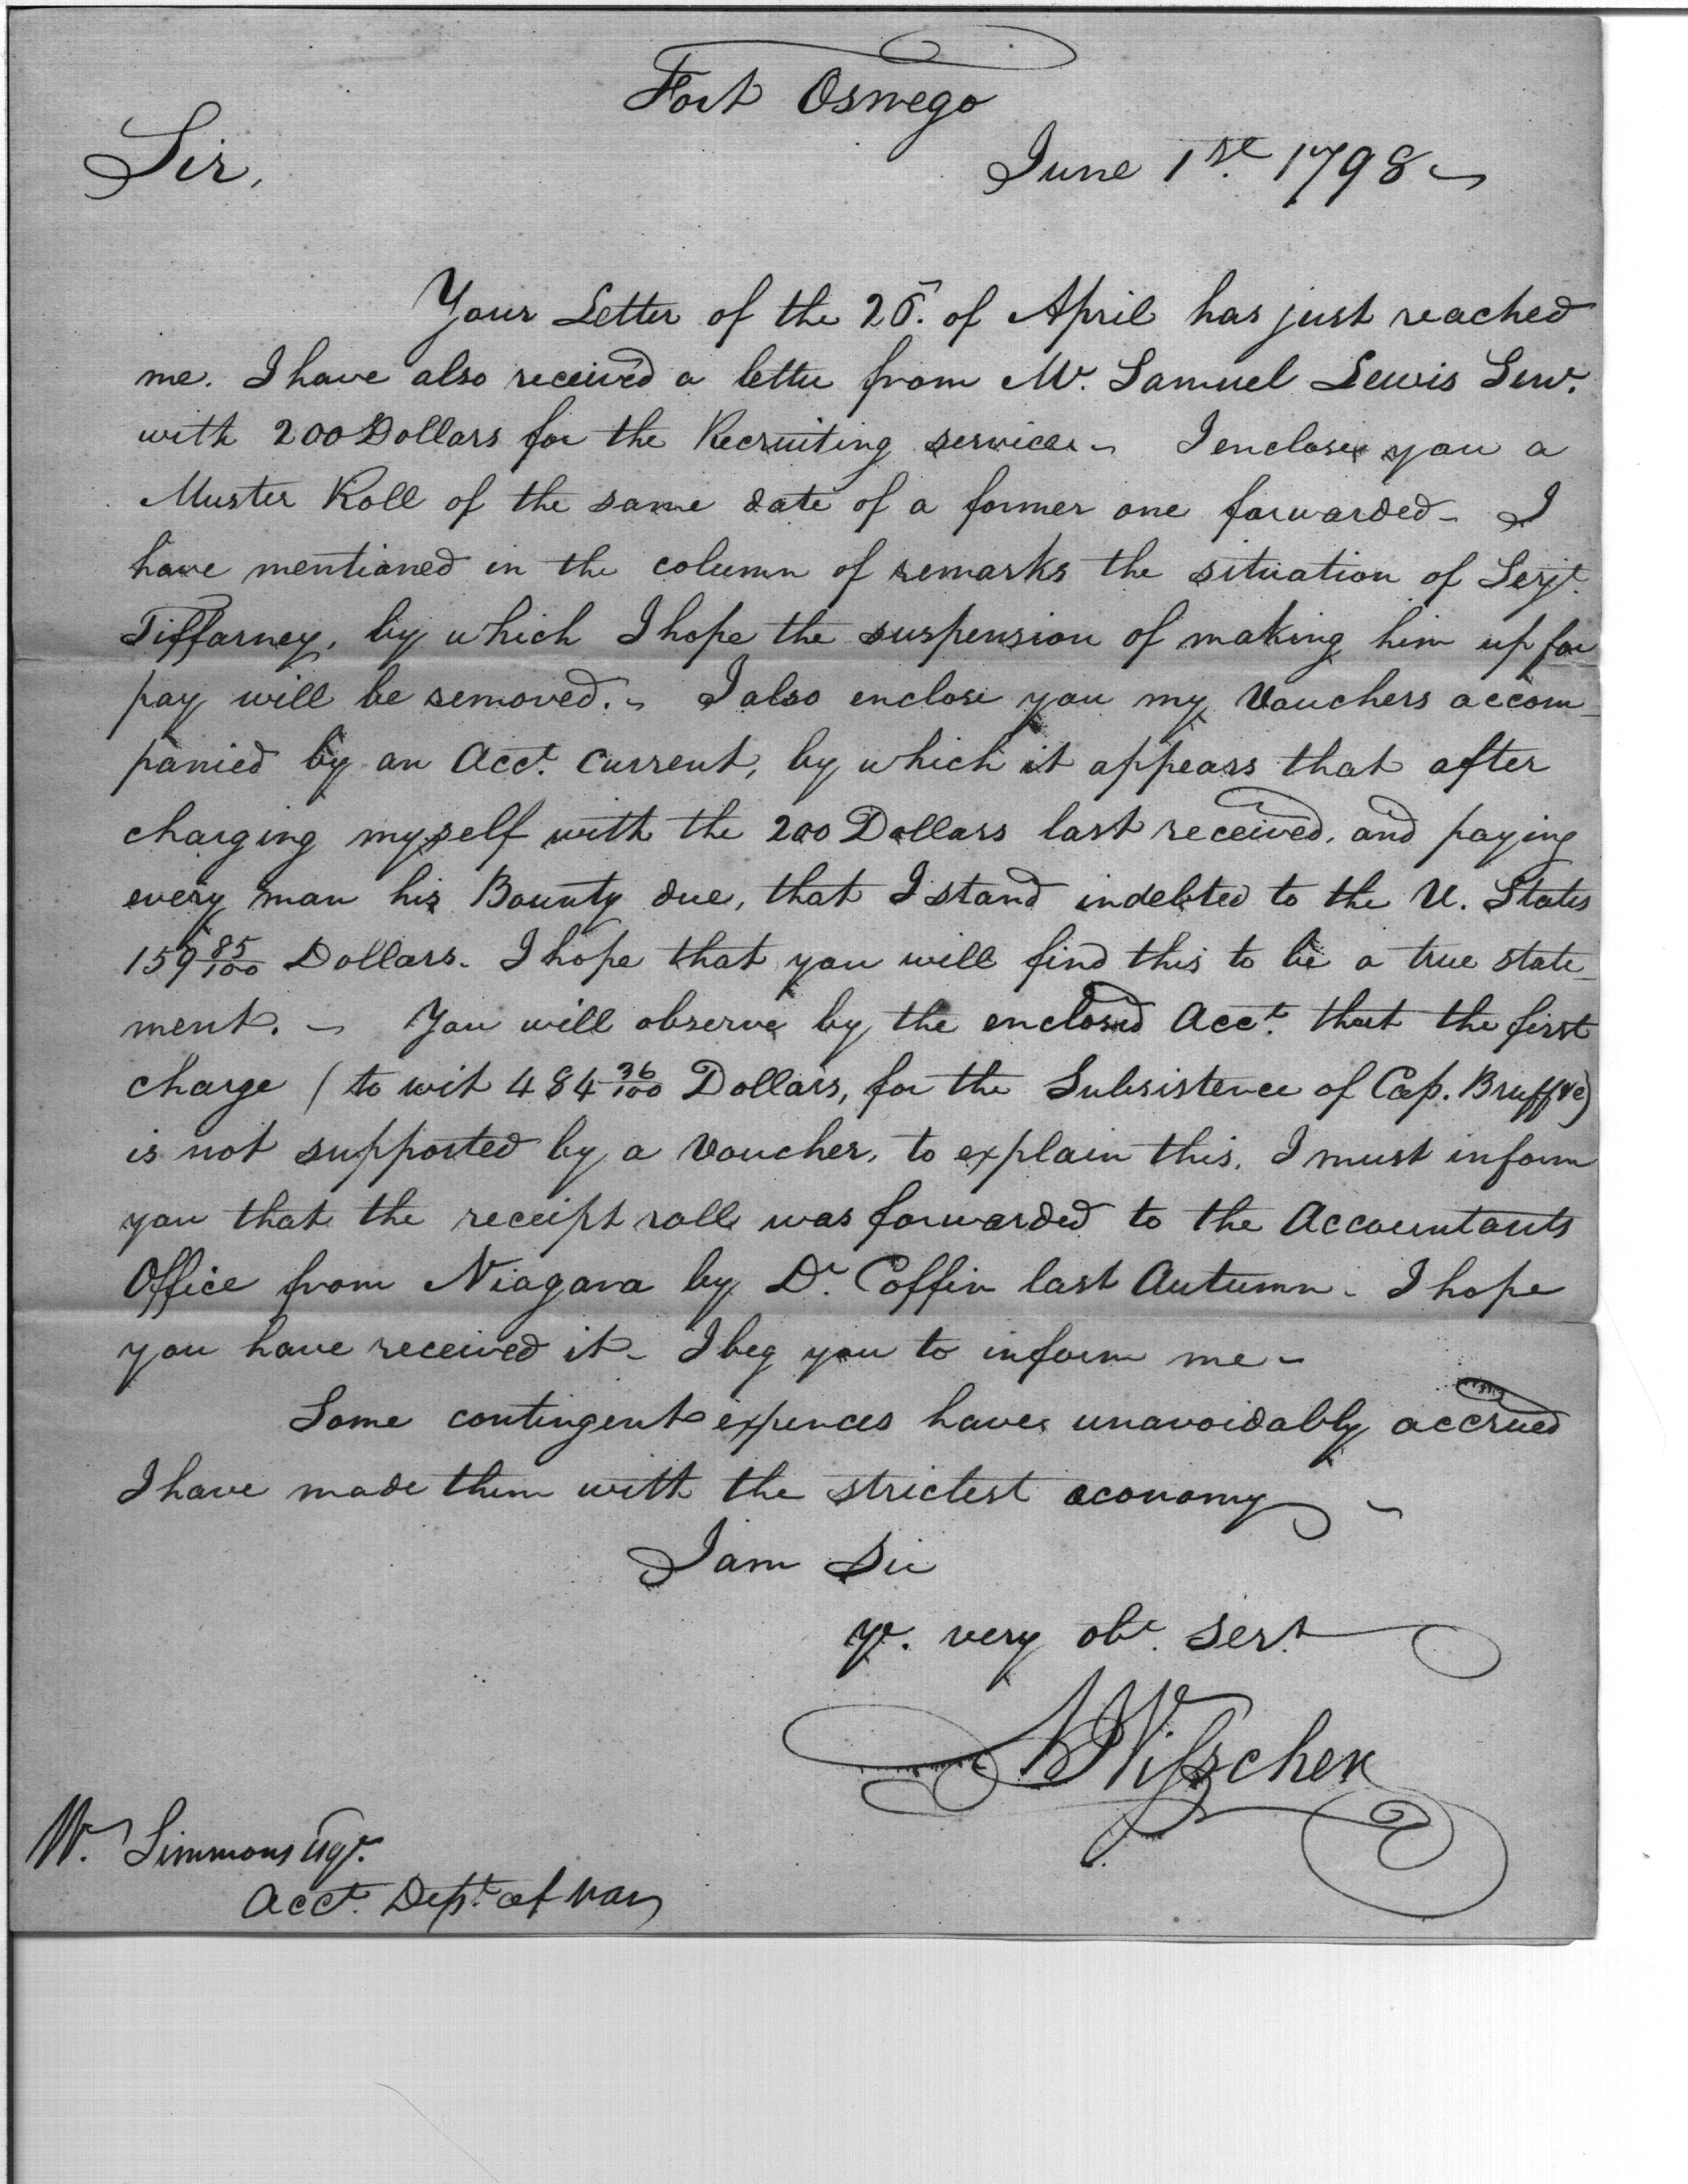 Fort Oswego
Sir,
June 1st. 1798
Your Letter of the of April has just reached
me. I have also receiv'd a letter from Mr. Samuel Lewis Senr.
with 200 Dollars for the Recruiting service - I enclose you a
Muster Roll of the same date of a former one forwarded - I
have mentioned in the column of remarks the situation of Serjt.
Tiffarney, by which I hope the suspension of making him up for
pay will be removed. - I also enclose you my Vouchers accom-
panied by an Acct. Current, by which it appears that after
charging myself with the 200 Dollars last received, and paying
every man his Bounty due, that I stand indebted to the U. States
159 85/100 Dollars. I hope that you will find this to be a true state-
ment. - You will observe by the enclosed Acct. that the first
charge (to wit 484 36/100 Dollars, for the Subsistence of Cap. Bruff &c)
is not supported by a Voucher, to explain this, I must inform
you that the receipt roll was forwarded to the Accountants
Office from Niagara by Dr. Coffin last Autumn - I hope
you have received it - I beg you to inform me -
Some contingent expences have unavoidably accrued
I have made them with the strictest oconomy -
I am Sir
yr. very obt. Sert.
NVisscher
Wm. Simmons Esqr.
Acct. Dept. of War